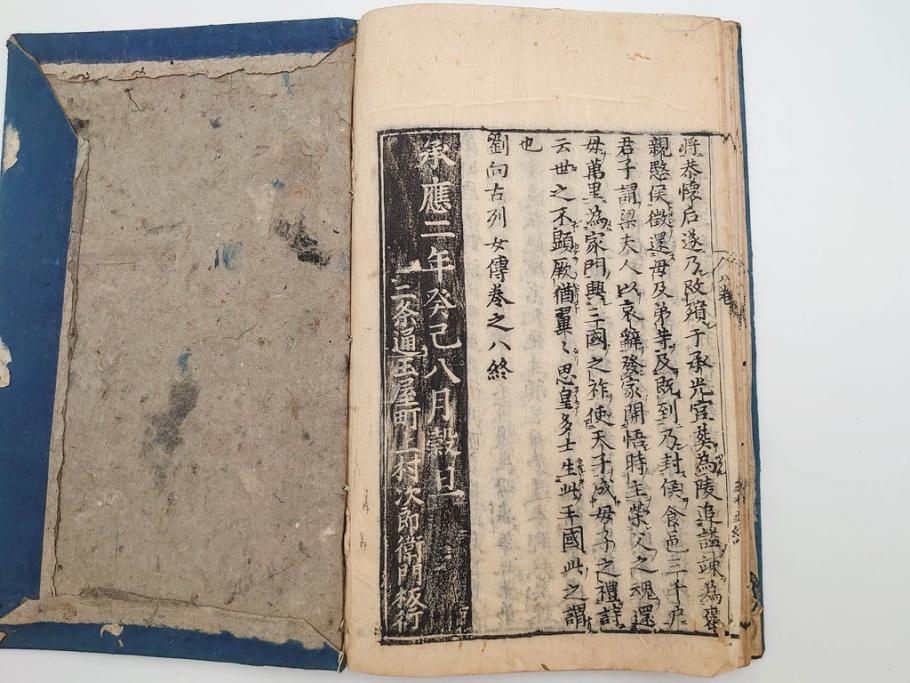 將恭懷后遂乃改殯于承光宮葬為陵追謚竦為褒
親愍侯徵還母及弟棠及既到乃封侯食邑三千户
君子謂梁夫人以哀辭發家開悟時主榮父之魂還
母萬里為家門興三國之祚使天子成母子之禮詩
云世之不顯厥猶翼〻思皇多士生此王國此之謂
也
劉向古列女傳卷之八終
承應二年癸巳八月穀旦
二条通玉屋町上村次郎衛門板行
八卷